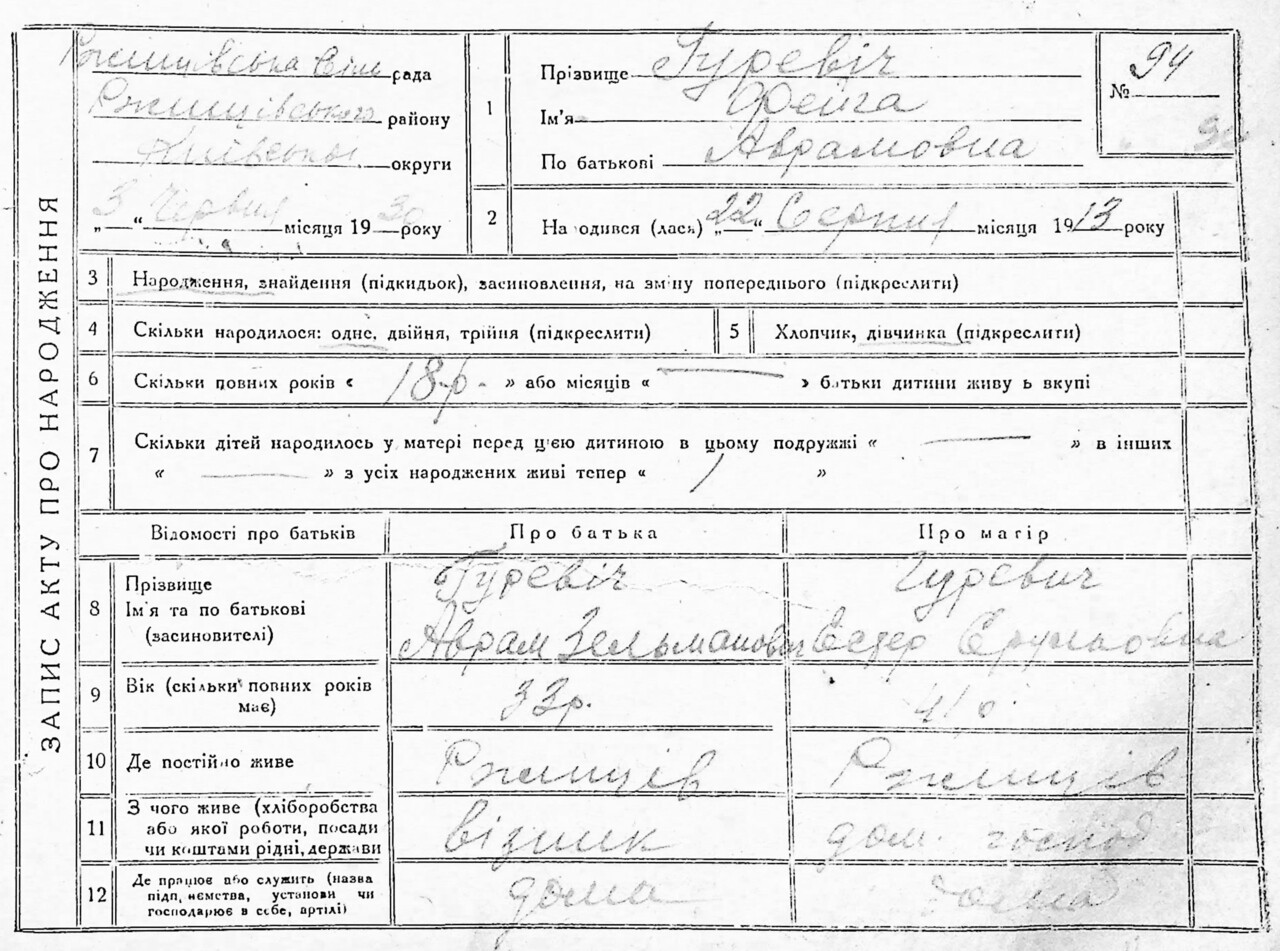 ЗАПИС АКТУ ПРО НАРОДЖЕННЯ
Ржищівська Сіль рада
Ржищівського району
Київської округи
„3“ Червня місяця 1930 року
1
Прізвище Гуревіч
Ім'я Фейга
По батькові Аврамовна
№ 94
2
На одився (лася) „22“ Серпня місяця 1913 року
3 Народження, знайдення (підкидьок), засиновлення, на зміну попереднього (підкреслити)
4 Скільки народилося: одне, двійня, трійня (підкреслити)
5 Хлопчик, дівчинка (підкреслити)
6 Скільки повних років « 18 р. » або місяців « — » батьки дитини живу ь вкупі
7 Скільки дітей народилось у матері перед цією дитиною в цьому подружжі « — » в інших
« — » з усіх народжених живі тепер « 1 »
Відомості про батьків
Про батька
Про матір
8
Прізвище
Ім'я та по батькові
(засиновителі)
Гуревіч
Аврам Зельманович
Гуревич
Естер
9
Вік (скільки повних років
має)
33р.
41 р.
10 Де постійно живе
Ржищів
Ржищів
11
З чого живе (хліборобства
або якої роботи, посади
чи коштами рідні, держави
візник
дом. господ
12
Де працює або служить (назва
підп, иємства, установи чи
господарює в себе, артілі)
дома
дома